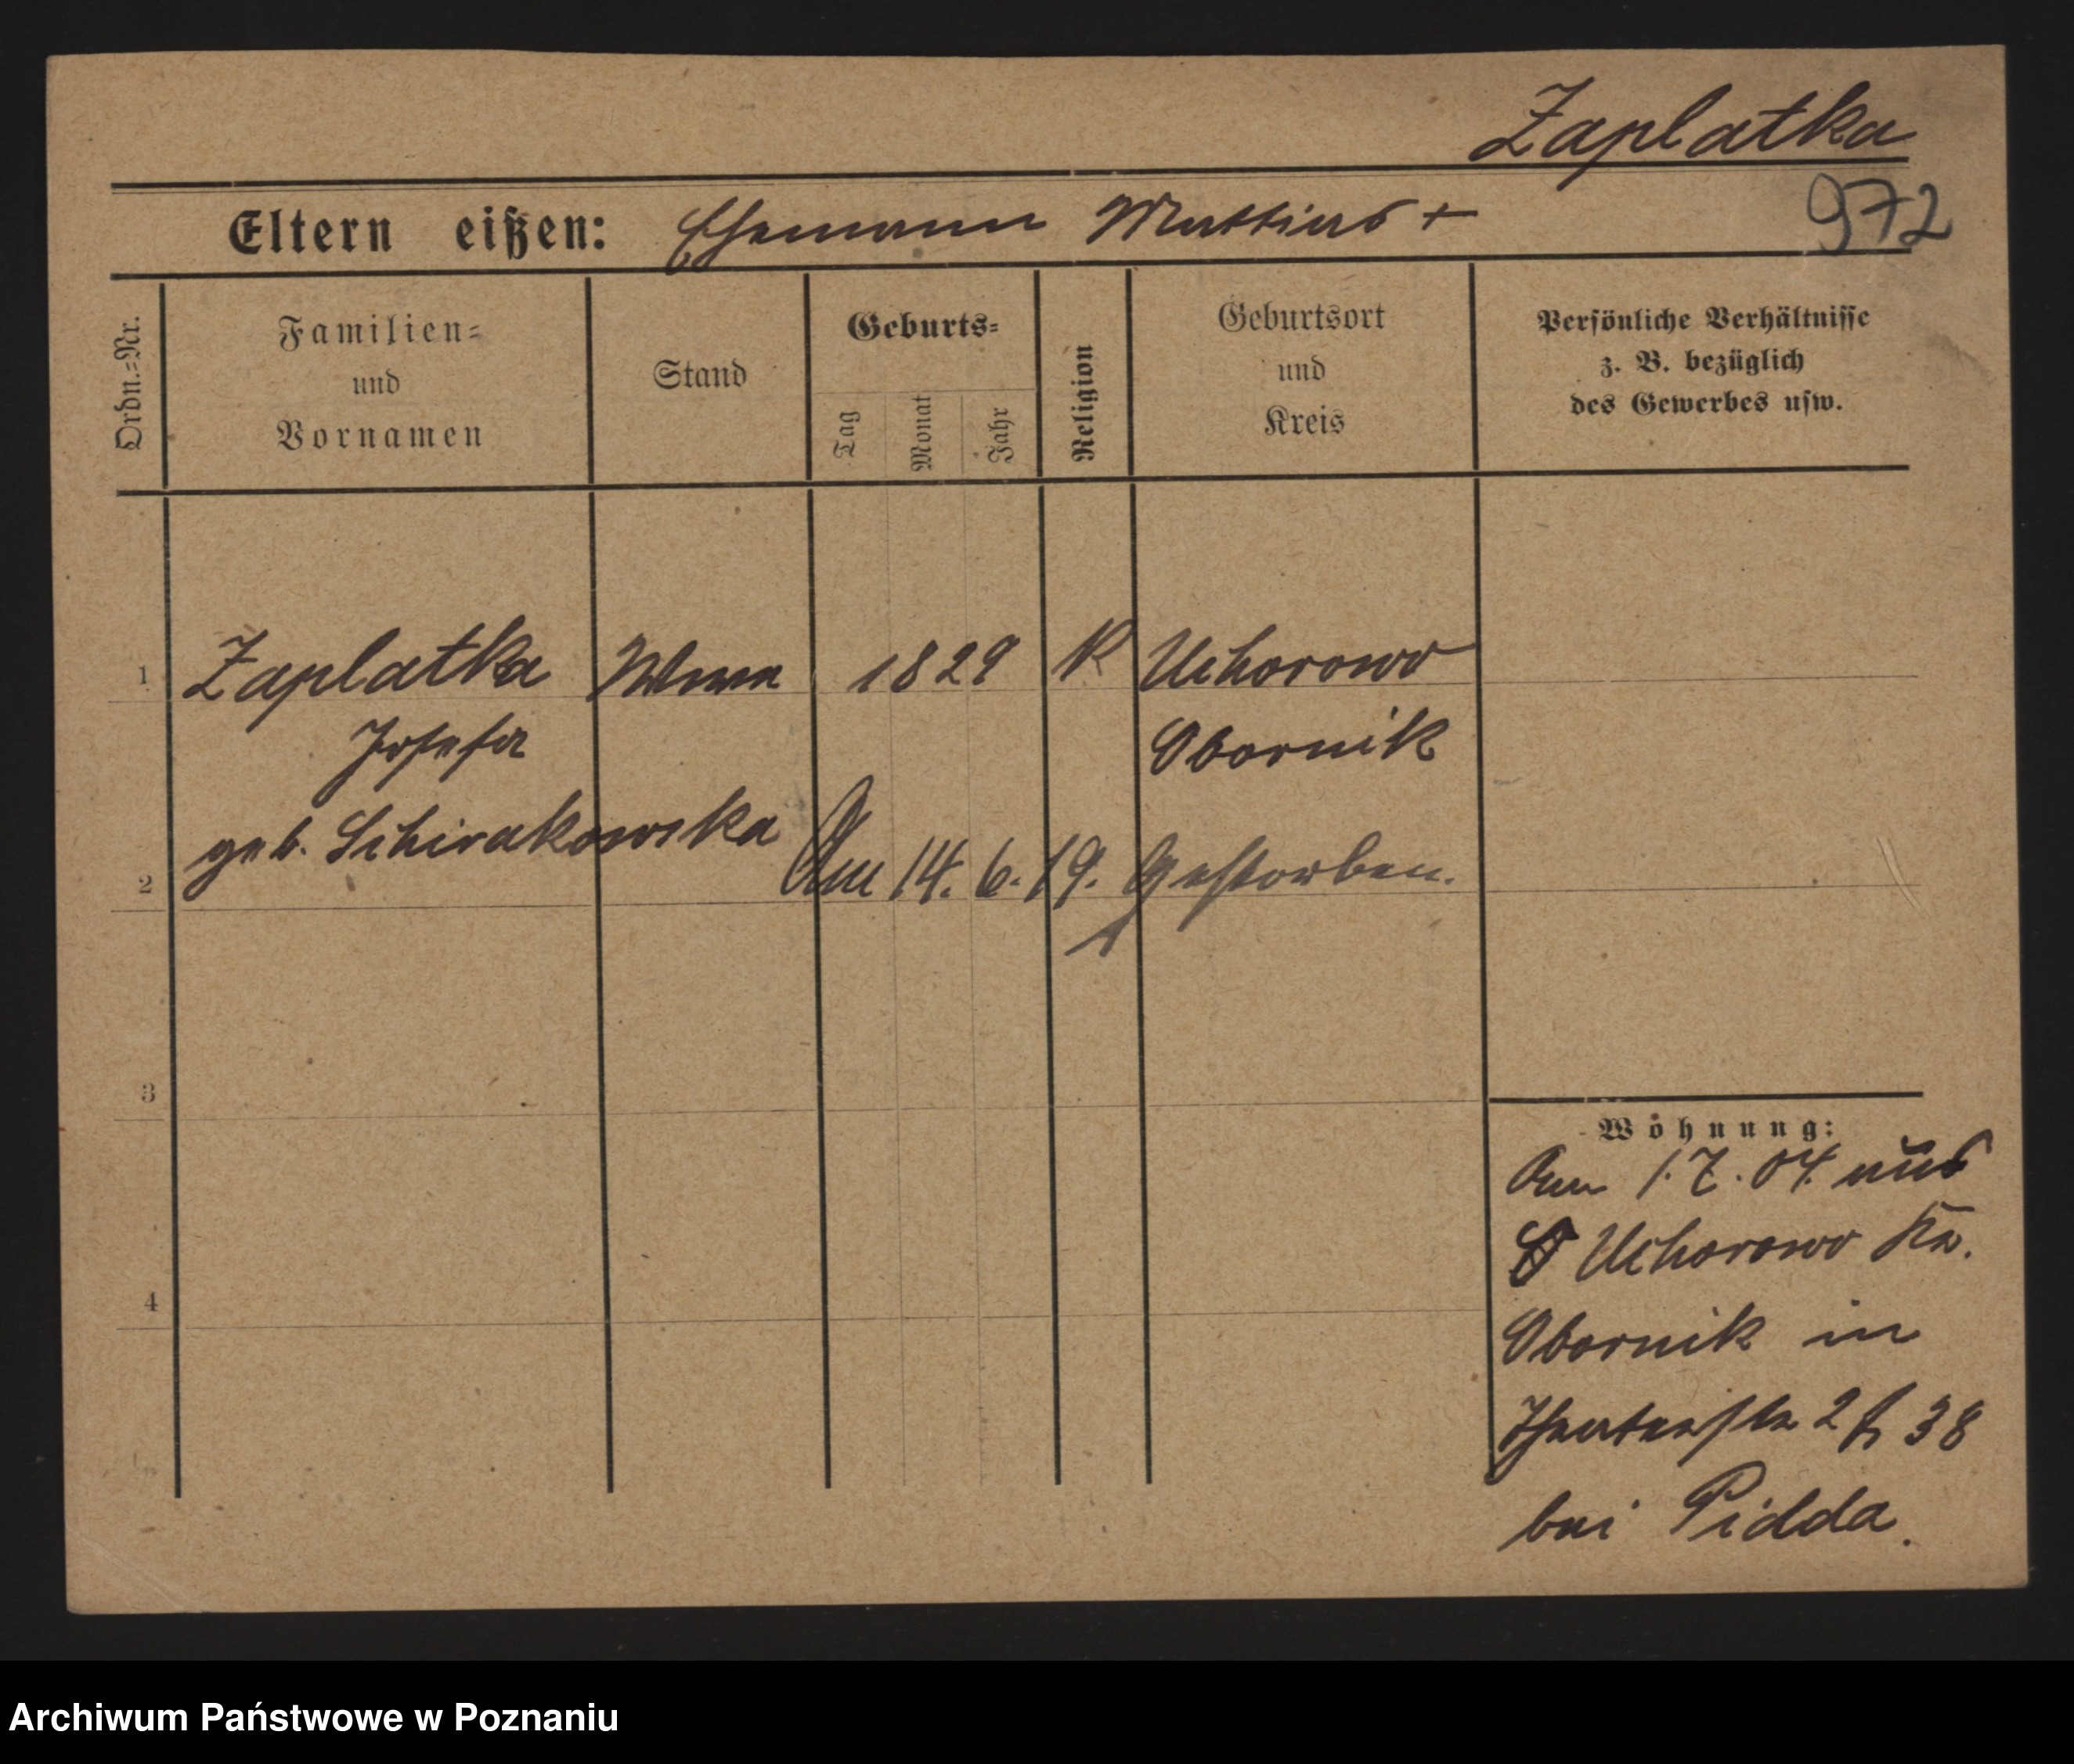 Zaplatka
Eltern eißen: Ehemann Mattias +
972
Ordn.-Nr.
Familien-
und
Vornamen
Stand
Geburts-
Tag
Monat
Jahr
Religion
Geburtsort
und
Kreis
Persönliche Verhältnisse
z. B. bezüglich
des Gewerbes usw.
1 Zaplatka Wwe 1829 K Uchorowo
Josefa Obornik
geb. Schirakowska
2 Am 14. 6. 19. Gestorben.
3
Wohnung:
Am 1. 7. 04. aus
Uchorowo Kr.
4
Obornik in
2 38
bei Pidda.
Archiwum Państwowe w Poznaniu